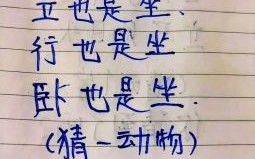 立也是坐.
行也是坐
卧也是坐.
(猜一动物)